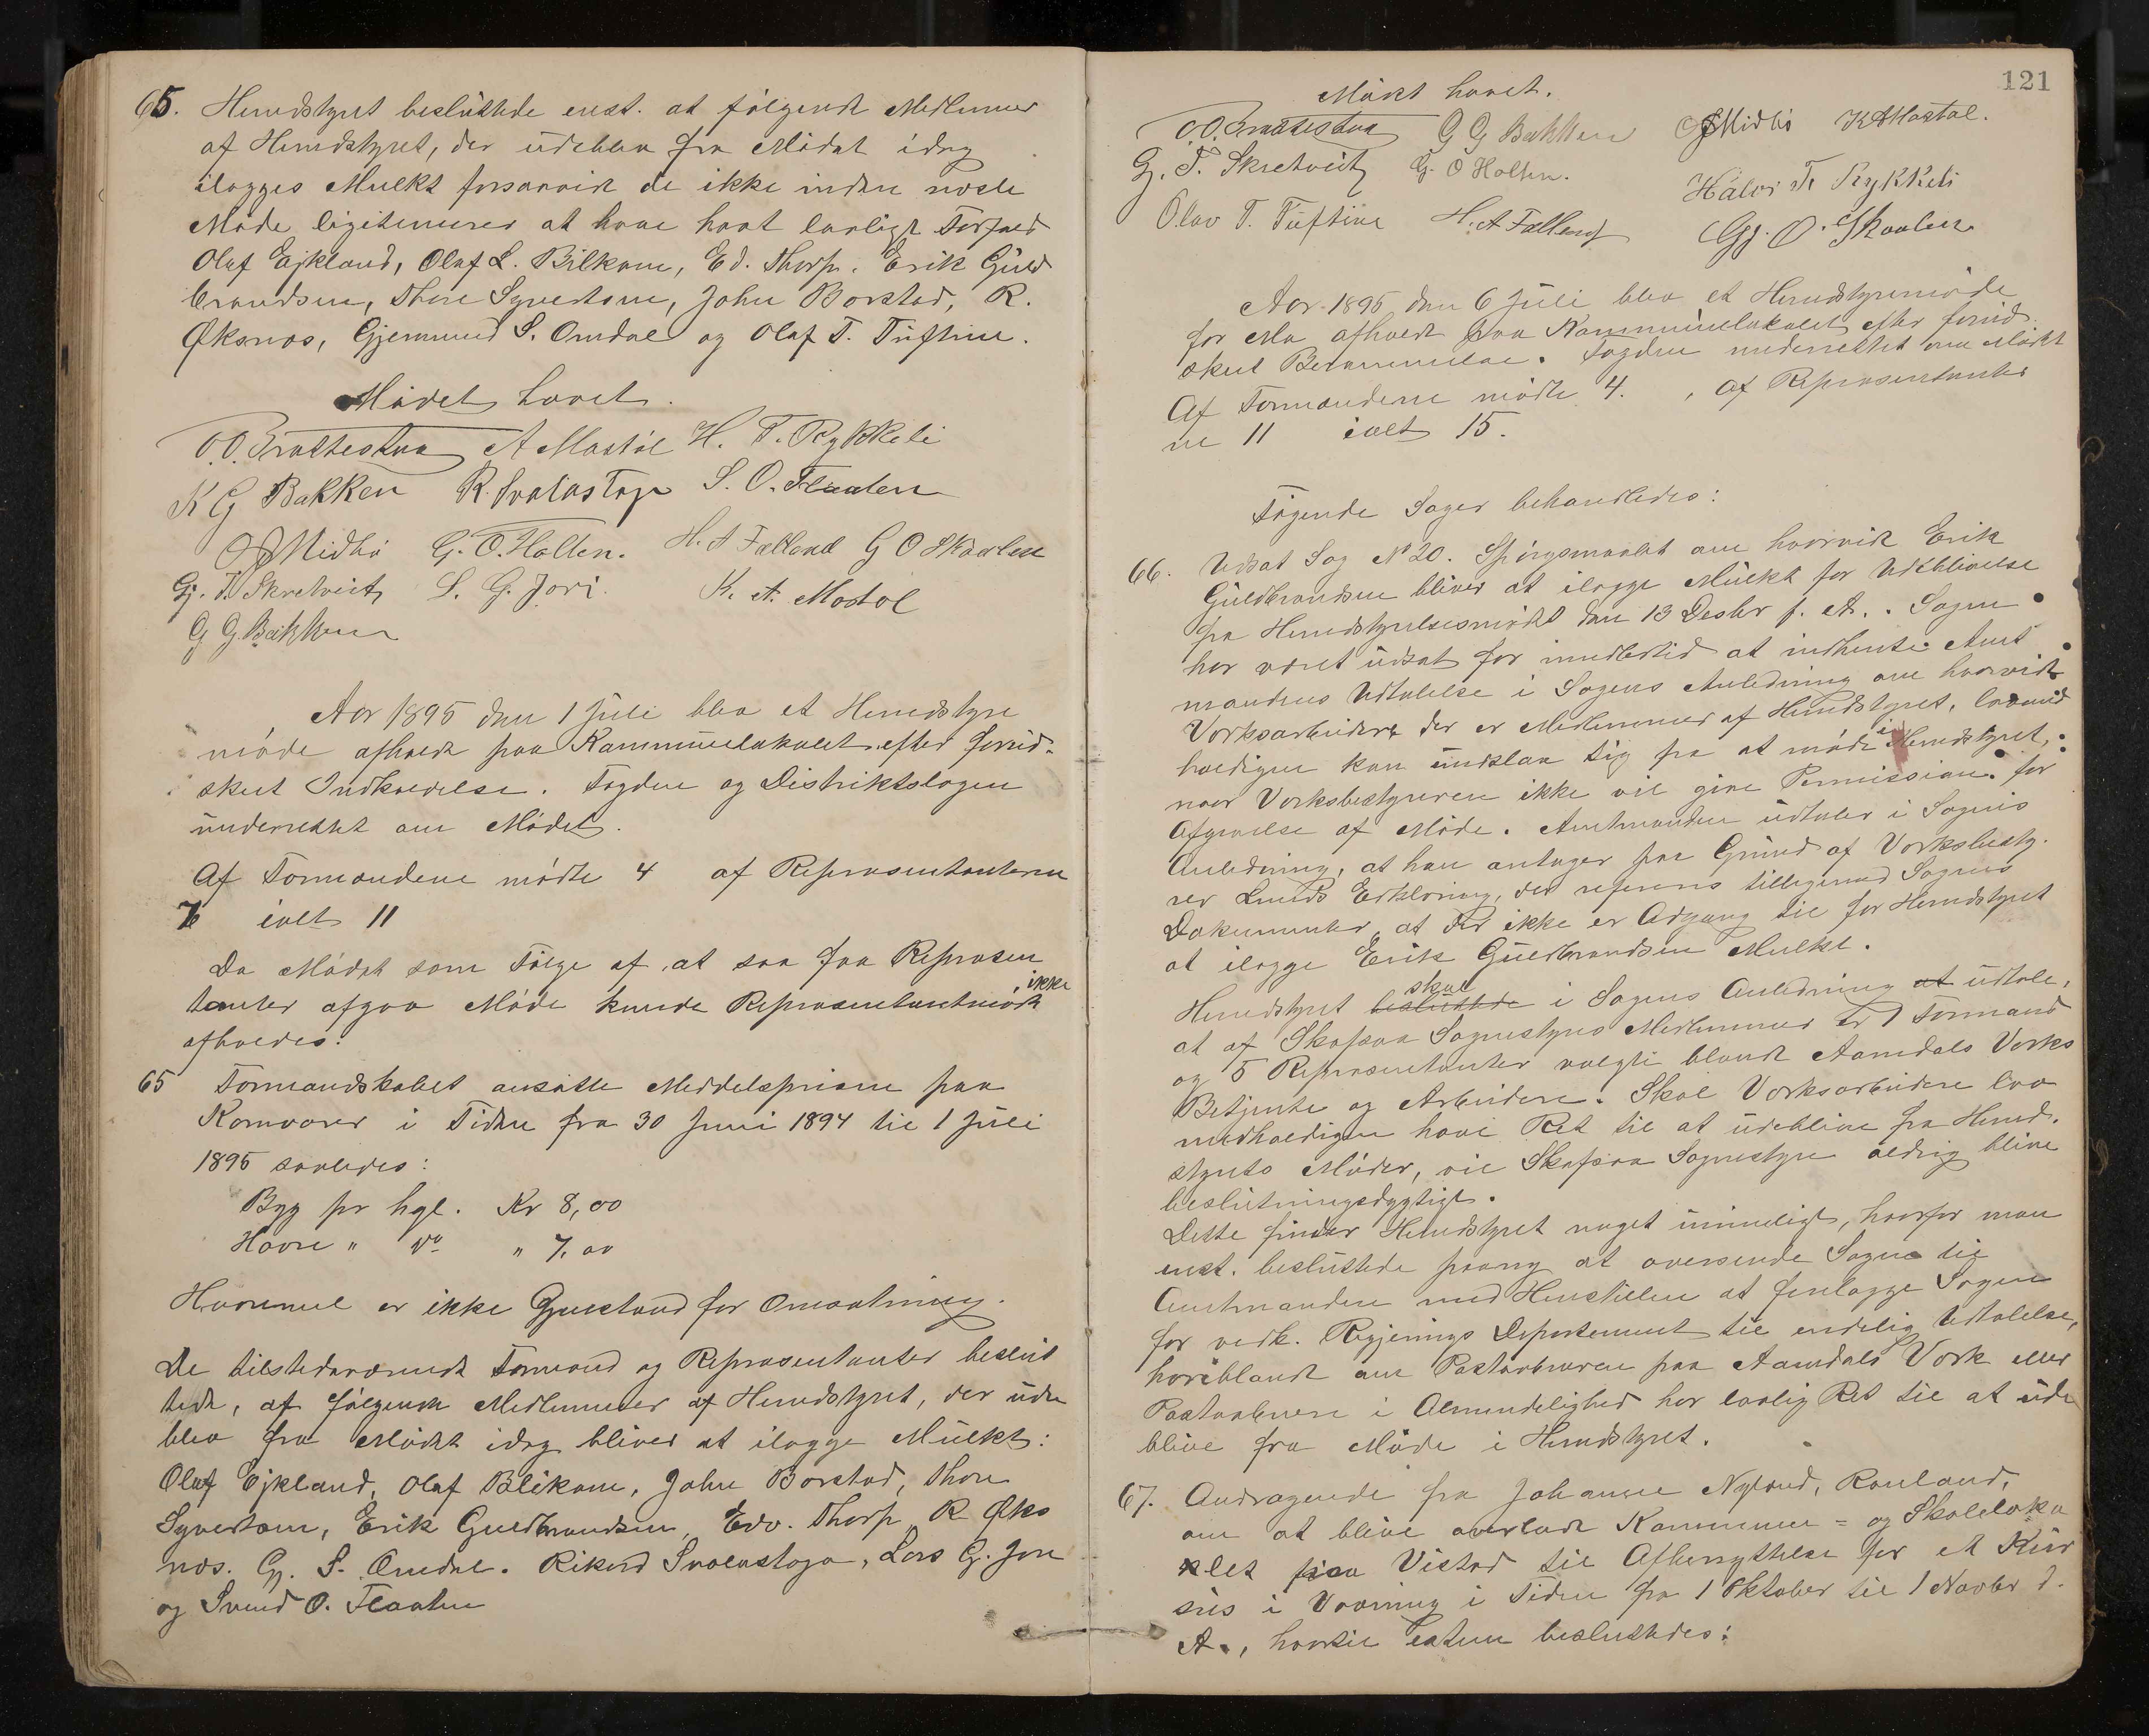 65. Herredstyret besluttede enst. at følgende Medlemmer
af Herredstyret, der udeblev fra Mødet idag
ilægges Mulkt forsaavidt de ikke inden næste
Møde ligitimerer at have havt lovligt Forfald
Olaf Ejkland, Olaf L. Bilkam, Ed. Thorp. Erik Guld
brandsen, Thore Syvertsen, John Borstad, R.
Øksnæs, Gjermund S. Omdal og Olaf T. Tuftine.
Mødet hævet.
O.O. Brattestaa A Mostøl H. T. Rykkeli
K G Bakken R. Svalastoga S. O. Flaaten
O J Midbø G. O. Holten. H. A Falland G O Skaalen
Gj. T. Skretveit L. G. Jore. K. A. Mostøl
G G. Bakken
Aar 1895 den 1 Juli blev et Herredstyre
møde afholdt paa Kommunelokalet efter forud-
skeet Indkaldelse. Fogden og Distriktslægen
underrettet om Mødet.
Af Formændene mødte 4 af Repræsentanterne
7 ialt 11
Da Mødet som Følge af at saa faa Repræsen
tanter afgav Møde kunde Repræsentantmøde ikke
afholdes.
65 Formandskabet ansatte Meddelsprisene paa
Kornvarer i Tiden fra 30 Juni 1894 til 1 Juli
1895 saaledes:
Byg pr hgl. Kr 8,00
Havre " do " 7,00
Havremel er ikke Gjenstand for Omsætning.
De tilstedeværende Formænd og Repræsentanter beslut
tede, af følgende Medlemmer af Herredstyret, der ude
blev fra Mødet idag bliver at ilægge Mulkt:
Olaf Ejkland, Olaf Blikam, John Borstad, Thore
Syvertsen, Erik Guldbrandsen, Edv. Thorp R Øks
næs. Gj. S. Omdal. Rikard Svalastoga, Lars G. Jore
og Svend O. Flaaten
121
Mødet hævet.
O.O. Brattestaa G G Bakken O J Midbø K A Mostøl.
Gj. T. Skretveit G. O Holten. Halvor T. Rykkeli
Olav T. Tuftine H. A Falland Gj. O. Skaalen
Aar 1895 den 6 Juli blev et Herredstyremøde
for Mo afholdt paa Kommunelokalet efter forud
skeet Berammelse. Fogden underrettet om Mødet
Af Formændene mødte 4. , af Repræsentanter
ne 11 ialt 15.
Følgende Sager behandledes:
66. Udsat Sag No 20. Spørgsmaalet om hvorvidt Erik
Guldbrandsen bliver at ilægge Mulkt for Udeblivelse
fra Herredstyrelsesmødet den 13 Decbr f. A.. Sagen
har været udsat for imidlertid at indhente Amt
mandens Udtalelse i Sagens Anledning om hvorvidt
Værksarbeidere der er Medlemmer af Herredstyret, lovmed
holdigen kan undslaa sig fra at møde i Herredstyret,
naar Værksbestyreren ikke vil give Permission for
Afgivelse af Møde. Amtmanden udtaler i Sagens
Anledning, at han antager paa Grund af Værksbesty-
rer Lunds Erklæring, der refereres tilligemed Sagens
Dokumenter, at der ikke er Adgang til for Herredstyret
at ilægge Erik Guldbrandsen Mulkt.
Herredstyret besluttede skal i Sagens Anledning at udtale,
at af Skafsaa Sognestyres Medlemmer er 1 Formand
og 5 Repræsentanter valgte blandt Aamdals Værks
Betjente og Arbeidere. Skal Værksarbeidere lov
medholdigen have Ret til at udeblive fra Herred-
styrets Møder, vil Skafsaa Sognestyre aldrig blive
beslutningsdygtigt.
Dette finder Herredstyret noget urimeligt, hvorfor man
enst. besluttede paany at oversende Sagen til
Amtmanden med Henstillen at forelægge Sagen
for vedk. Regjerings Departement til endelig Udtalelse,
horiblandt om Postaabneren paa Aamdals Værk eller
Postaabnere i Almindelighed har lovlig Ret til at ude
blive fra Møde i Herredstyret.
67. Andragende fra Johanne Nyland, Rauland,
om at blive overladt Kommune- og Skoleloka
let paa Vistad til Afbenyttelse for et Kur
sus i Vævning i Tiden fra 1 Oktober til 1 Novbr d.
A., hvortil eatim besluttedes: